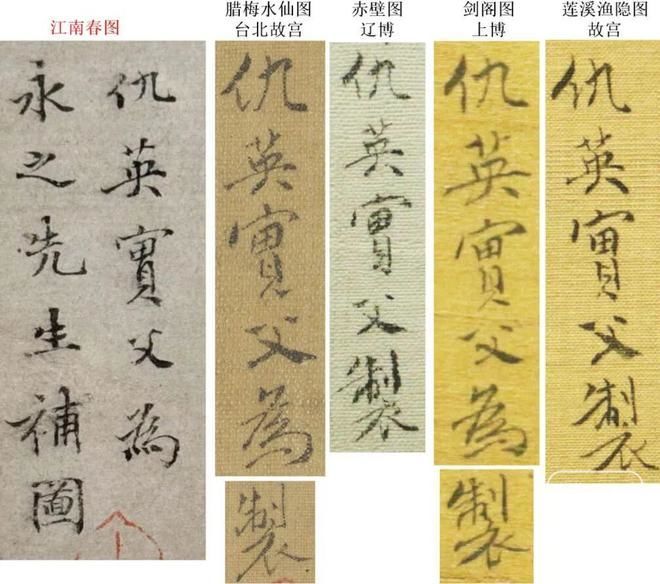 江南春图
仇英實父為
永之先生補圖
腊梅水仙图
台北故宫
仇英實父為
製
赤壁图
辽博
仇英實父製
剑阁图
上博
仇英實父為
製
莲溪渔隐图
故宫
仇英實父製